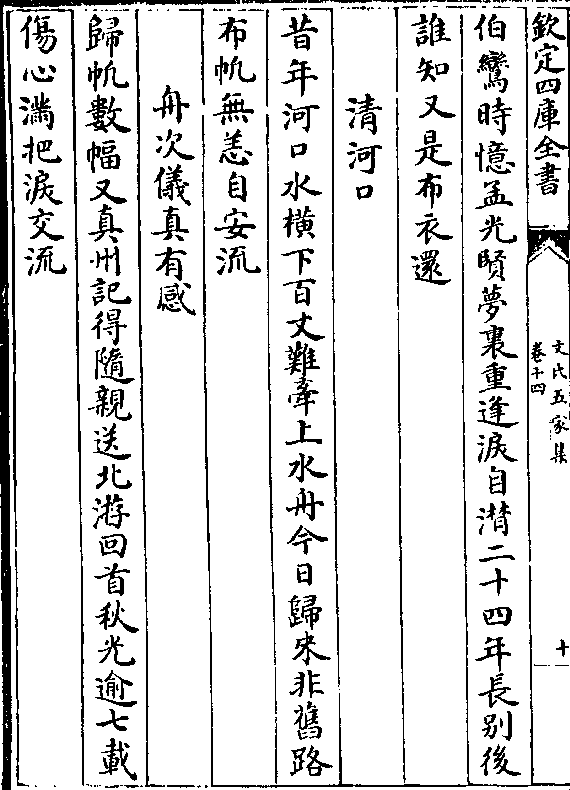 欽定四庫全書
文氏五家集
卷十四
十
伯鸞時憶孟光賢夢裏重逢淚自潸二十四年長别後
誰知又是布衣還
清河口
昔年河口水横下百丈難牽上水舟今日歸来非舊路
布帆無恙自安流
舟次儀真有感
歸帆數幅又真州記得隨親送北游回首秋光逾七載
傷心滿把淚交流